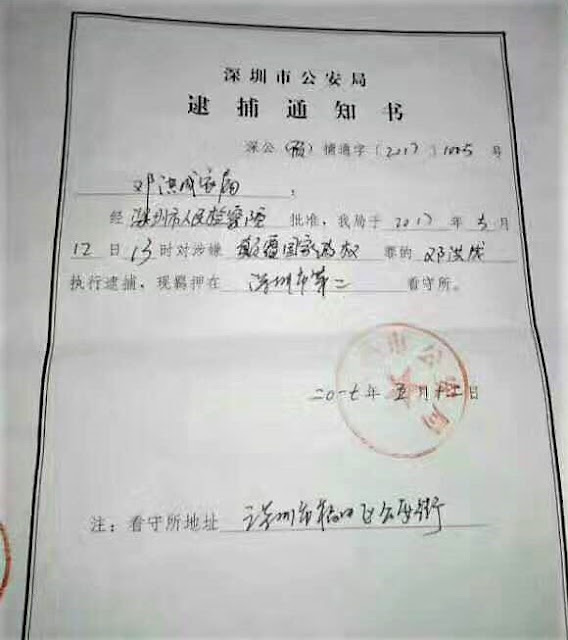 深圳市公安局
逮捕通知书
深公（预）捕通字〔2017〕1005号
邓洪成家属：
经 深圳市人民检察院 批准，我局于 2017 年 5 月
12 日 13 时对涉嫌 颠覆国家政权 罪的 邓洪成
执行逮捕，现羁押在 深圳市第二 看守所。
市公安局
二〇一七年 五 月十二日
注：看守所地址 深圳市